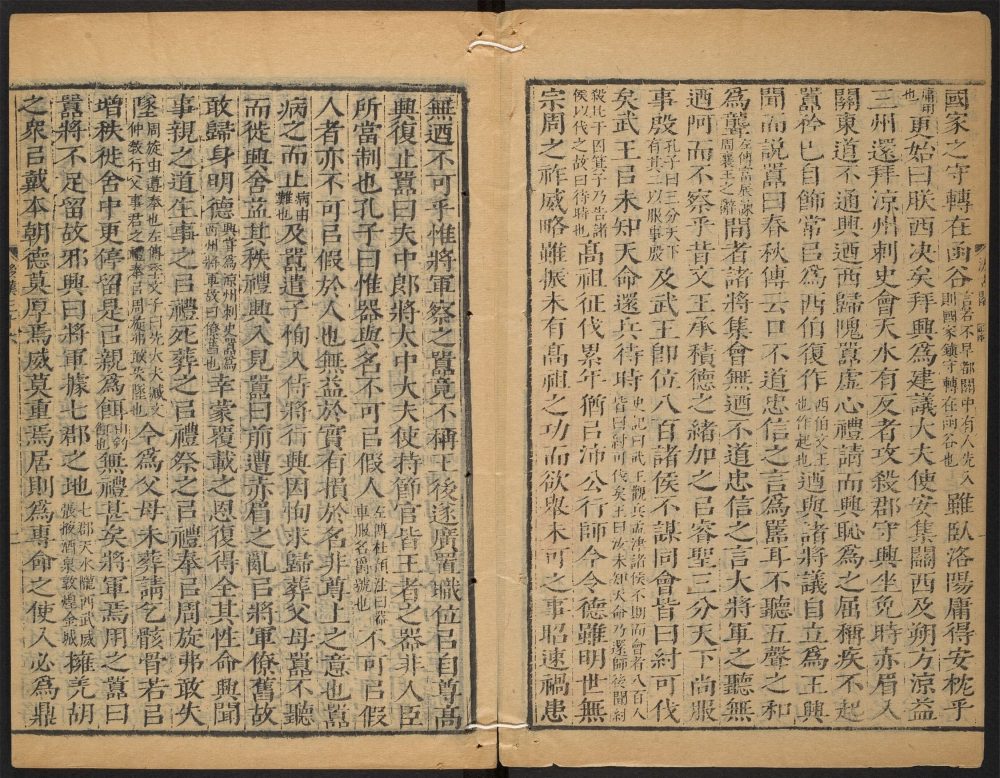 國家之守轉在函谷言若不早都關中有人先入則國家鎮守轉在函谷也雖臥洛陽庸得安枕乎
庸用也更始曰朕西決矣拜興為諫議大夫使安集關西及朔方涼益
三州還拜涼州刺史會天水有反者攻殺郡守興坐免時赤眉入
關東道不通興迺西歸隗囂虛心禮請而興恥為之屈稱疾不起
囂矜己自飾常㠯為西伯復作西伯文王也作起也迺與諸將議自立為王興
聞而說囂曰春秋傳云口不道忠信之言為嚚耳不聽五聲之和
為聾左傳富辰諫周襄王之辭閒者諸將集會無迺不道忠信之言大將軍之聽無
迺阿而不察乎昔文王承積德之緒加之㠯睿聖三分天下尚服
事殷孔子曰三分天下有其二以服事殷及武王即位八百諸侯不謀同會皆曰紂可伐
矣武王㠯未知天命還兵待時史記曰武王觀兵孟津諸侯不期而會者八百人皆曰紂可伐矣王曰汝未知天命乃還師後聞紂
殺比干囚箕子乃告諸侯以伐之故曰待時也高祖征伐累年猶㠯沛公行師今令德雖明世無
宗周之祚威略雖振未有高祖之功而欲舉未可之事昭速禍患
無迺不可乎惟將軍察之囂竟不稱王後遂廣置職位㠯自尊高
興復止囂曰夫中郎將太中大夫使持節官皆王者之器非人臣
所當制也孔子曰惟器與名不可㠯假人左傳杜預注曰器車服名爵號也不可㠯假
人者亦不可㠯假於人也無益於實有損於名非尊上之意也囂
病之而止病由難也及囂遣子恂入侍將行興因恂求歸葬父母囂不聽
而徙興舍益其秩禮興入見囂曰前遭赤眉之亂㠯將軍僚舊故
敢歸身明德興嘗為涼州刺史囂為西州將軍故曰僚舊也幸蒙覆載之恩復得全其性命興聞
事親之道生事之㠯禮死葬之㠯禮祭之㠯禮奉㠯周旋弗敢失
墜周旋由遵奉也左傳季文子曰先大夫臧文仲教行父事君之禮奉㠯周旋弗敢失墜也今為父母未葬請乞骸骨若㠯
增秩徙舍中更停留是㠯親為餌無禮甚矣將軍焉用之囂曰
囂將不足留故邪興曰將軍據七郡之地七郡天水隴西武威張掖酒泉敦煌金城擁羌胡
之眾㠯戴本朝德莫厚焉威莫重焉居則為專命之使入必為鼎